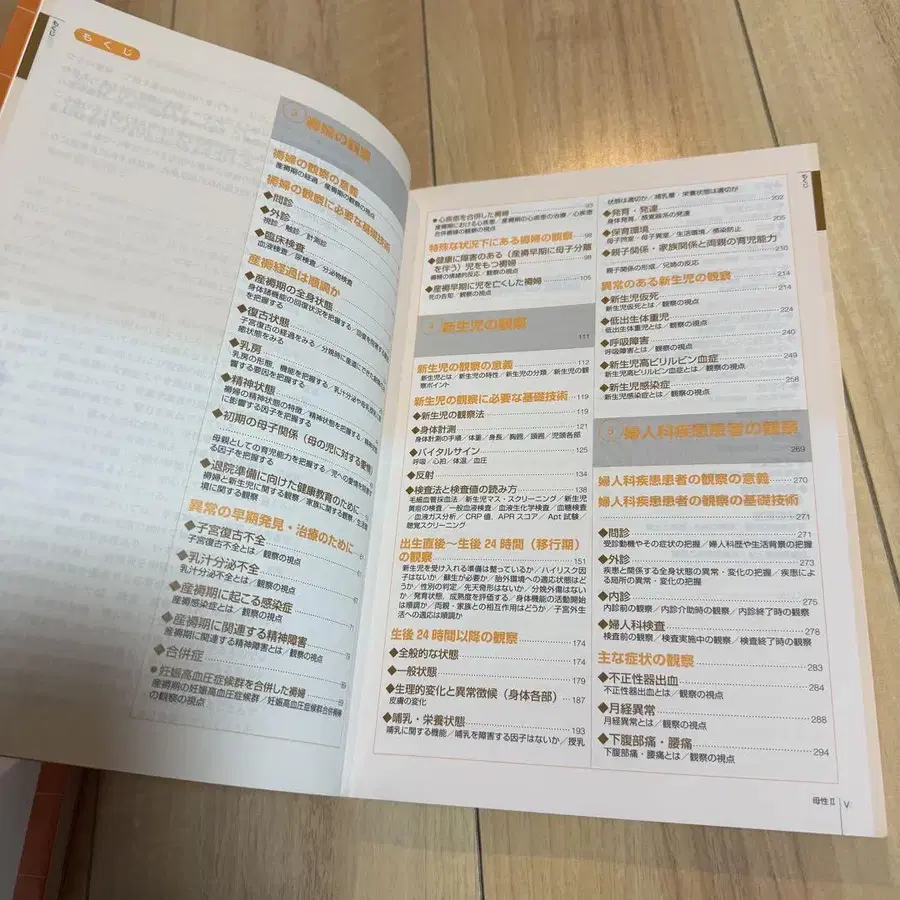 もくじ
褥婦の観察
褥婦の観察の意義
産褥期の経過/産褥期の観察の視点
褥婦の観察に必要な基礎技術
◆問診
◆外診
視診/触診/計測診
◆臨床検査
血液検査/尿検査/分泌物検査
産褥経過は順調か
◆産褥期の全身状態
身体諸機能の回復状況を把握する/回復を
を把握する
◆復古状態
子宮復古の経過をみる/分娩時に
態状態をみる
◆乳房
乳房の形態、機能を把握する/乳汁分泌
する要因を把握する
◆精神状態
褥婦の精神状態の特徴/精神状態を把握する/精神状態
に影響する因子を把握する
◆初期の母子関係(母の児に対する愛情)
母親としての育児能力を把握する/児への愛情を
る因子を把握する
◆退院準備に向けた健康教育のために
褥婦と新生児に関する観察/家族に関する観察/生活環
境に関する観察
異常の早期発見・治療のために
◆子宮復古不全
子宮復古不全とは/観察の視点
◆乳汁分泌不全
乳汁分泌不全とは/観察の視点
◆産褥期に起こる感染症
産褥感染症とは/観察の視点
◆産褥期に関連する精神障害
産褥期に関連する精神障害とは/観察の視点
◆合併症
●妊娠高血圧症候群を合併した褥婦
産褥期の妊娠高血圧症候群/妊娠高血圧症候群合併褥婦
の観察の視点
●心疾患を合併した褥婦 93
産褥期における心疾患/産褥期の心疾患の治療/心疾患
合併褥婦の観察の視点
特殊な状況下にある褥婦の観察 98
◆健康に障害のある(産褥早期に母子分離
を伴う)児をもつ褥婦 98
褥婦の情緒的反応/観察の視点
◆産褥早期に児を亡くした褥婦 105
死の告知/観察の視点
4 新生児の観察
111
新生児の観察の意義 112
新生児とは/新生児の特性/新生児の分類/新生児の観
察ポイント
新生児の観察に必要な基礎技術 119
◆新生児の観察法 119
◆身体計測 121
身体計測の手順/体重/身長/胸囲/頭囲/児頭各部
◆バイタルサイン 125
呼吸/心拍/体温/血圧
◆反射 134
◆検査法と検査値の読み方 138
毛細血管採血法/新生児マス・スクリーニング/新生児
黄疸の検査/一般血液検査/血液生化学検査/血糖検査
/血液ガス分析/CRP値、APRスコア/Apt試験/
聴覚スクリーニング
出生直後～生後24時間(移行期)
の観察 151
新生児を受け入れる準備は整っているか/ハイリスク因
子はないか/蘇生が必要か/胎外環境への適応状態はど
うか/性別の判定/先天奇形はないか/分娩外傷はない
か/発育状態、成熟度を評価する/身体機能の活動開始
は順調か/両親・家族との相互作用はどうか/子宮外生
活への適応は順調か
生後24時間以降の観察 174
◆全般的な状態 174
◆一般状態 179
◆生理的変化と異常徴候(身体各部) 187
皮膚の変化
◆哺乳・栄養状態 193
哺乳に関する機能/哺乳を障害する因子はないか/授乳
もくじ
状態は適切か/哺乳量・栄養状態は適切か
◆発育・発達 202
身体発育/感覚器系の発達
◆保育環境 205
母子同室・母子異室/生活環境/感染防止
◆親子関係・家族関係と両親の育児能力
210
親子関係の形成/兄姉の反応
異常のある新生児の観察 214
◆新生児仮死 214
新生児仮死とは/観察の視点
◆低出生体重児 224
低出生体重児とは/観察の視点
◆呼吸障害 240
呼吸障害とは/観察の視点
◆新生児高ビリルビン血症 249
新生児高ビリルビン血症とは/観察の視点
◆新生児感染症 258
新生児感染症とは/観察の視点
5 婦人科疾患患者の観察
269
婦人科疾患患者の観察の意義 270
婦人科疾患患者の観察の基礎技術
271
◆問診 271
受診動機やその症状の把握/婦人科歴や生活背景の把握
◆外診
疾患と関係する全身状態の異常・変化の把握/疾患によ
る局所の異常・変化の把握
◆内診 275
内診前の観察/内診介助時の観察/内診終了時の観察
◆婦人科検査 278
検査前の観察/検査実施中の観察/検査終了時の観察
主な症状の観察 283
◆不正性器出血 284
不正性器出血とは/観察の視点
◆月経異常 288
月経異常とは/観察の視点
◆下腹部痛・腰痛 294
下腹部痛・腰痛とは/観察の視点
母性Ⅱ V